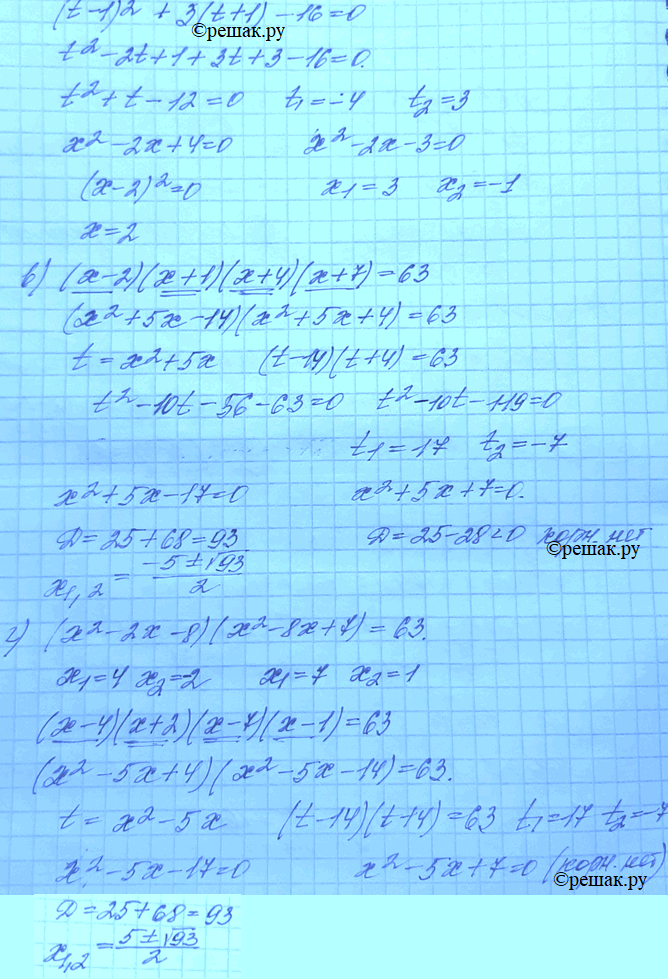 (t-1)² + 3(t+1) -16=0
©решак.ру
t² -2t+1+3t+3-16=0.
t²+t-12=0 t₁=-4 t₂=3
x²-2x+4=0 x²-2x-3=0
(x-2)²=0 x₁=3 x₂=-1
x=2
в) (x-2)(x+1)(x+4)(x+7)=63
(x²+5x-14)(x²+5x+4)=63
t=x²+5x (t-14)(t+4)=63
t²-10t-56-63=0 t²-10t-119=0
t₁=17 t₂=-7
x²+5x-17=0 x²+5x+7=0.
D=25+68=93 D=25-28<0 корн. нет
©решак.ру
x₁,₂ = (-5±√93)/2
г) (x²-2x-8)(x²-8x+7)=63.
x₁=4 x₂=-2 x₁=7 x₂=1
(x-4)(x+2)(x-7)(x-1)=63
(x²-5x+4)(x²-5x-14)=63.
t=x²-5x (t-14)(t+4)=63 t₁=17 t₂=-7
x²-5x-17=0 x²-5x+7=0 (корн. нет)
©решак.ру
D=25+68=93
x₁,₂ = (5±√93)/2